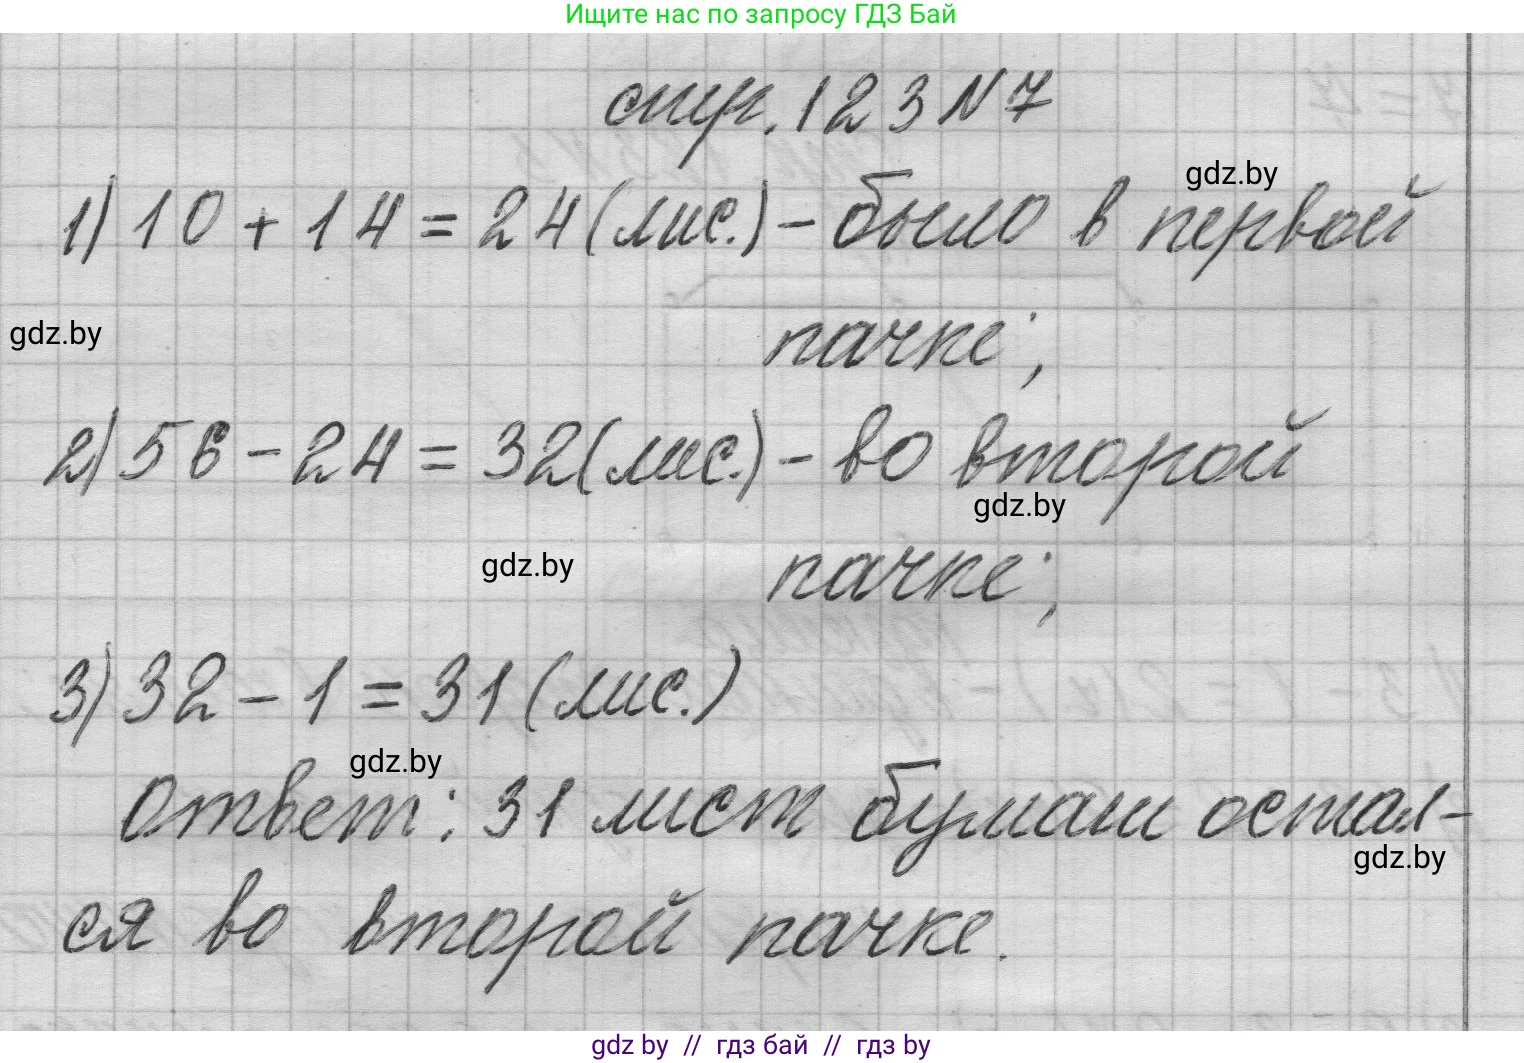 Ищите нас по запросу ГДЗ Бай
стр. 123 N 7
gdz.by
1) 10 + 14 = 24 (лис.) - было в первой
gdz.by
пачке;
2) 56 - 24 = 32 (лис.) - во второй
gdz.by
gdz.by
пачке;
3) 32 - 1 = 31 (лис.)
gdz.by
Ответ: 31 лист бумаги остал-
gdz.by
ся во второй пачке.
gdz by // гдз бай // гдз by